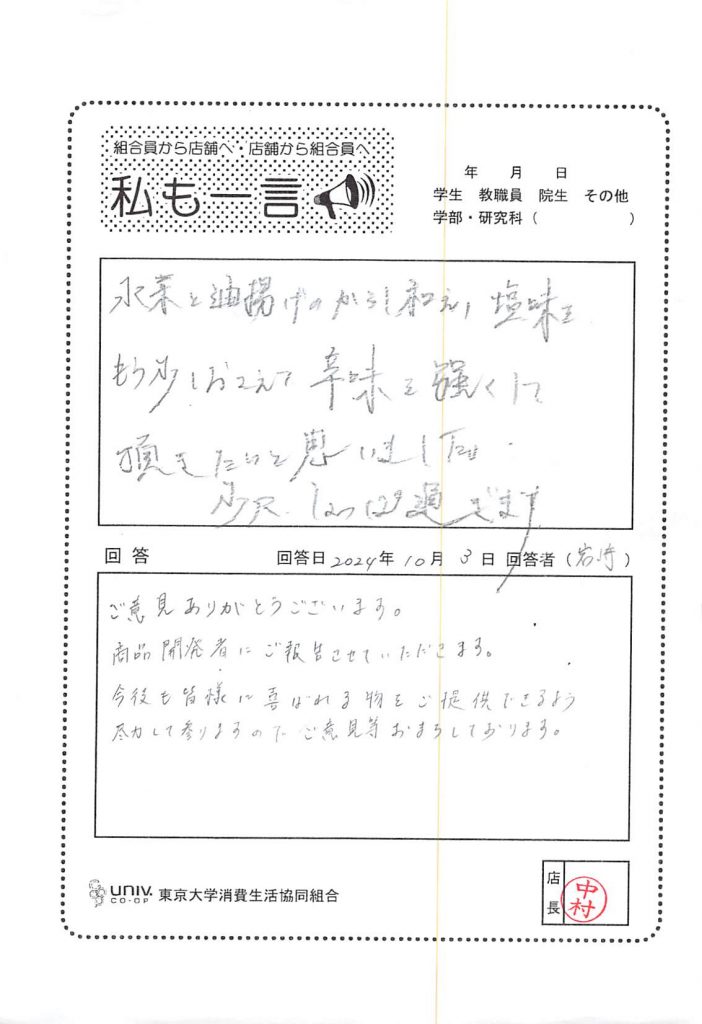 組合員から店舗へ・店舗から組合員へ
私も一言
年 月 日
学生 教職員 院生 その他
学部・研究科( )
水菜と油揚げのからし和え、塩味を
もう少しおさえて辛味を強くして
頂きたいと思いました。
少々、しょっぱ過ぎます
回答 回答日 2024年 10月 3日 回答者(岩崎)
ご意見ありがとうございます。
商品開発者にご報告させていただきます。
今後も皆様に喜ばれる物をご提供できるよう
尽力して参りますので ご意見等おまちしております。
UNIV. CO-OP 東京大学消費生活協同組合
店長 中村